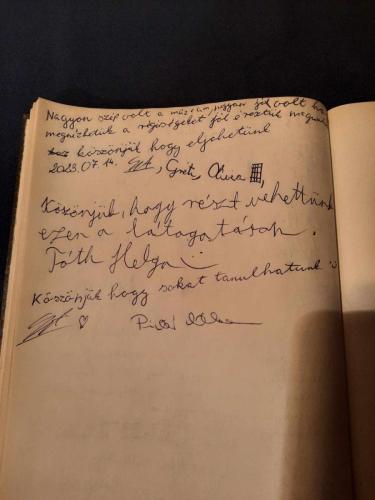 Nagyon szép volt a múzeum, nagyon jól volt
megnézhetük a régiségeket jól éreztük magunk
köszönjük hogy eljöhetünk
2023.07.14. , Gréti, Olivia ,
Köszönjük, hogy részt vehettünk
ezen a látogatáson.
Tóth Helga
Köszönjük hogy sokat tanulhatunk